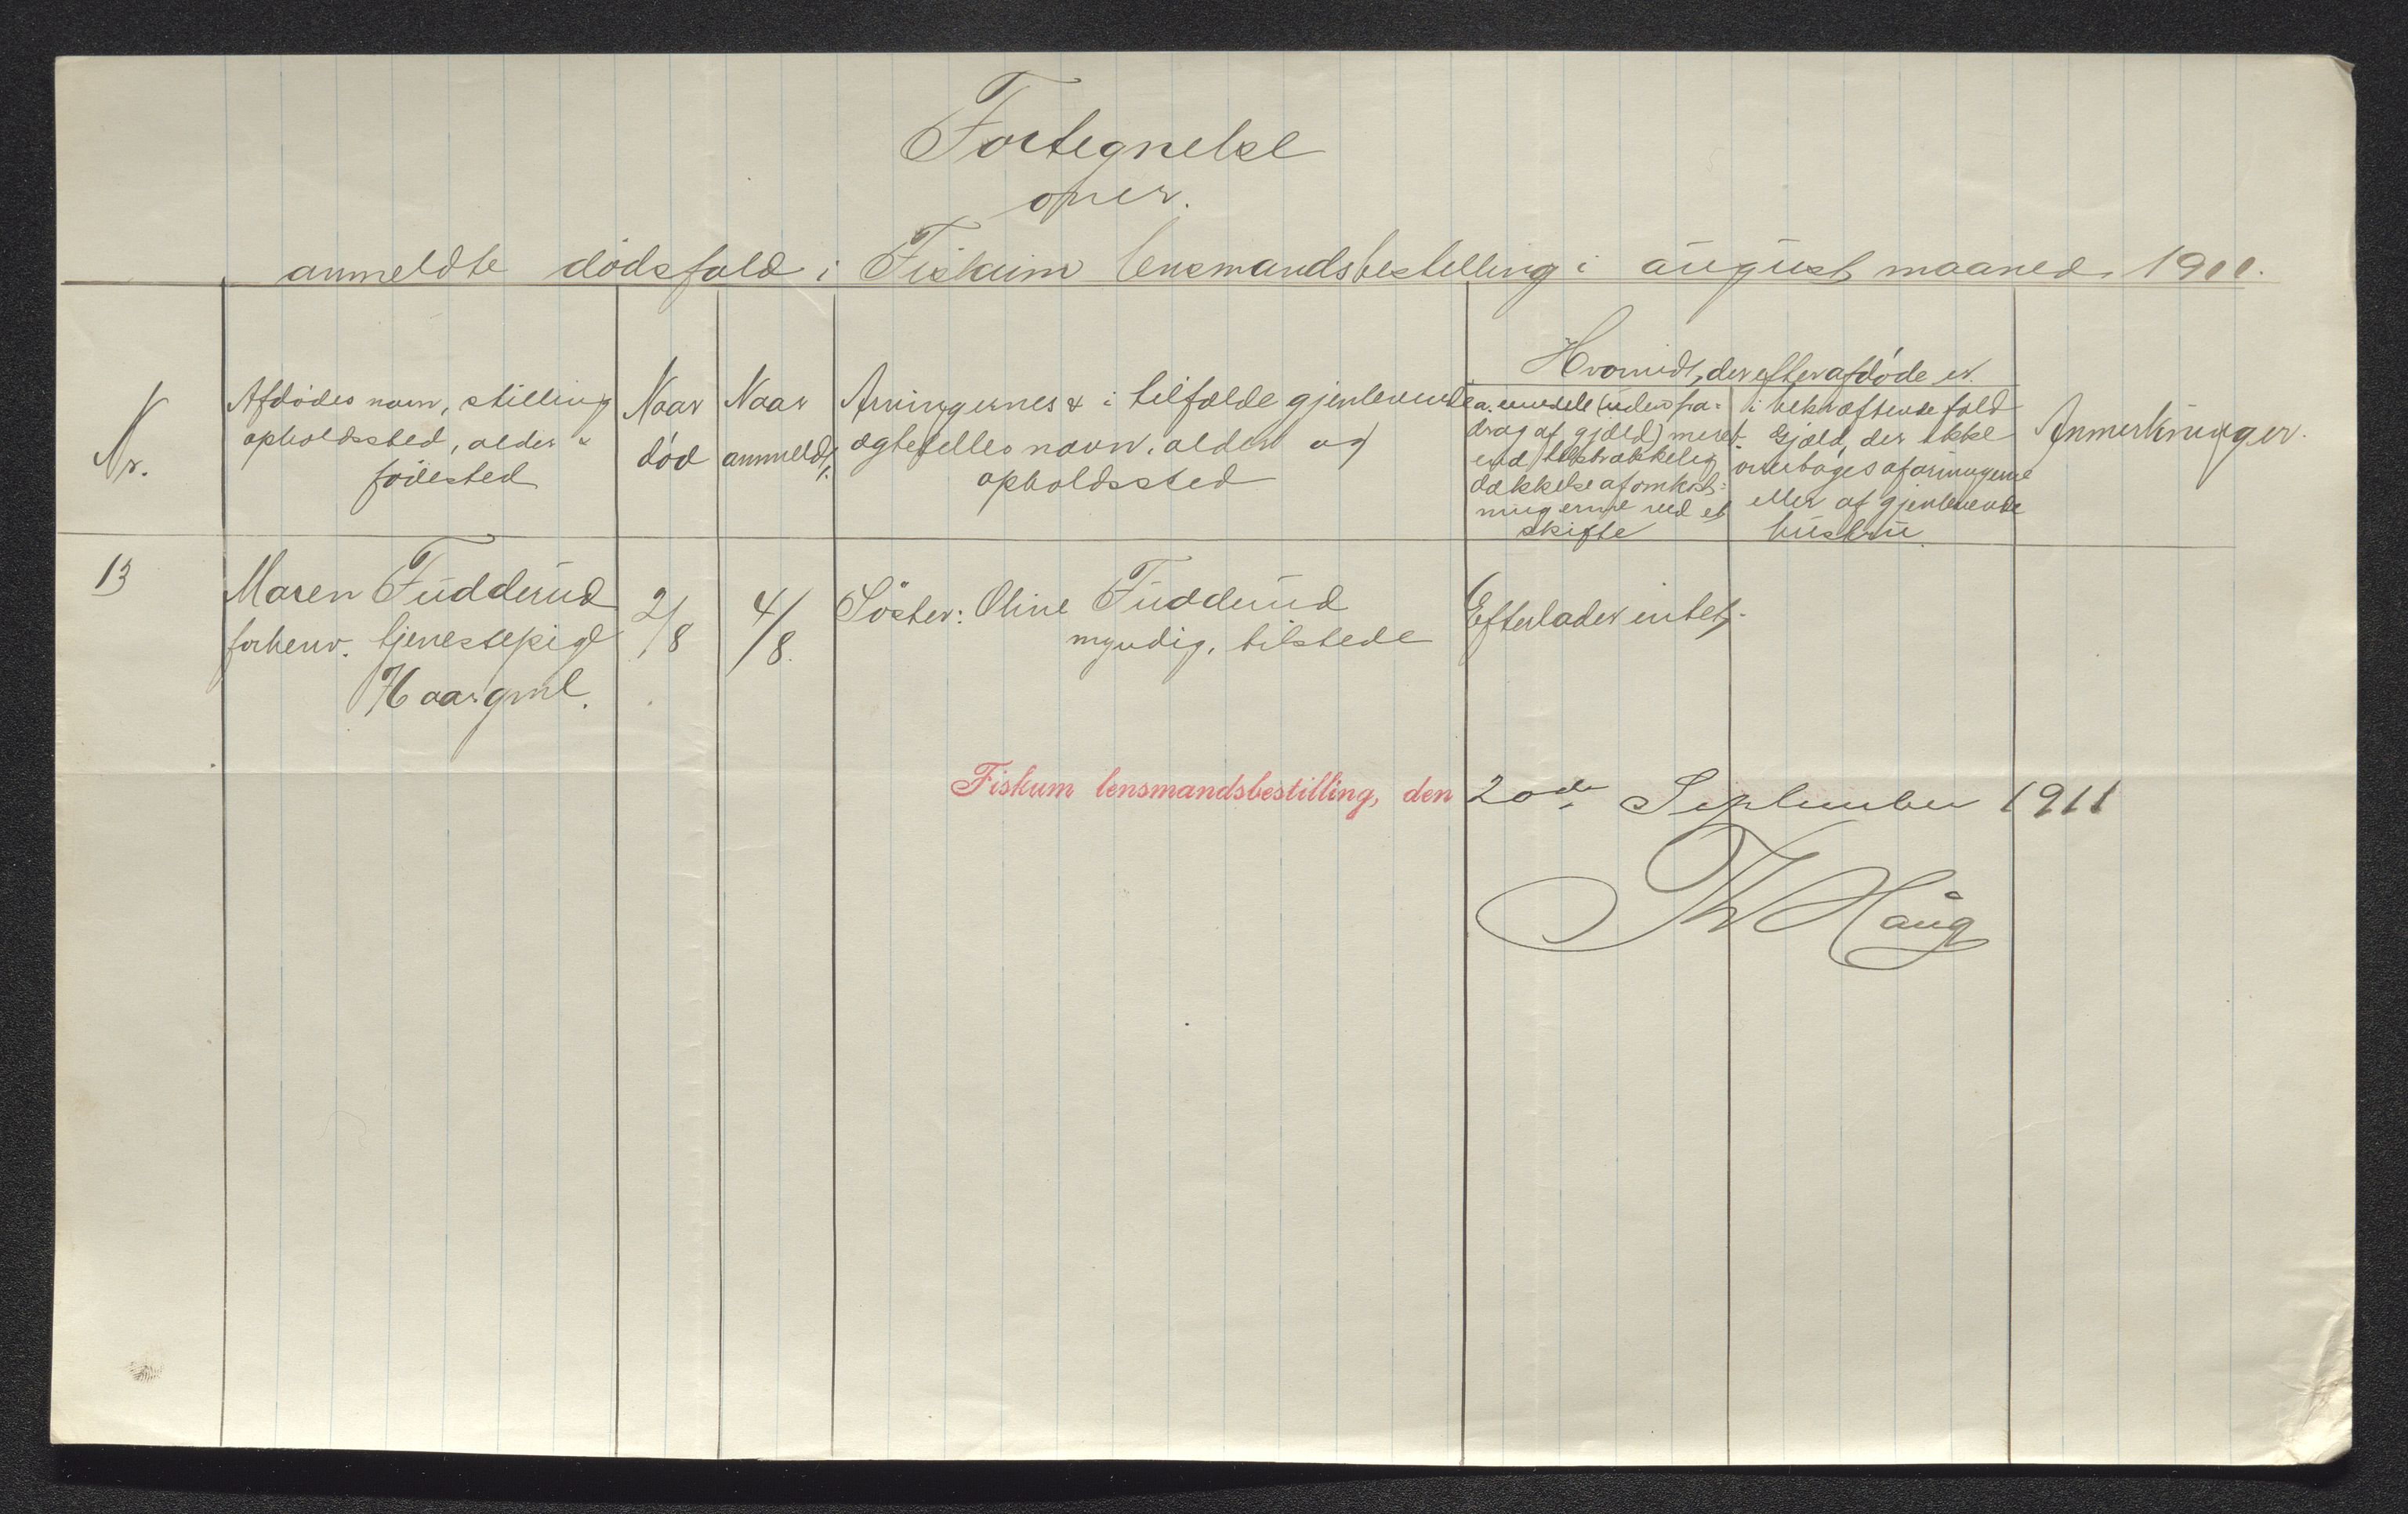 Fortegnelse
over.
anmeldte dödsfald i Fiskum lensmandsbestilling i august maaned 1911.
Nr.
Afdødes navn, stilling
opholdssted, alder &
fødested
Naar
død
Naar
anmeldt.
Arvingernes & i tilfælde gjenlevende
ægtefelles navn, alder og
opholdssted
Hvorvidt, der efter afdøde er
a. midele (uden fra-
drag af gjæld) mere
end tilstrækkelig
dækkelse af omkost-
ningerne ved et
skifte
i bekræftende fald
Gjæld, der ikke
overtages af arvingerne
eller af gjenlevende
hustru.
Anmerkninger.
13
Maren Fudderud
forhenv. tjenestepige
Haar gml.
2/8
4/8.
Söster: Oline Fudderud
myndig, tilstede
Efterlader intet.
Fiskum lensmandsbestilling, den 20de September 1911
Th Haug